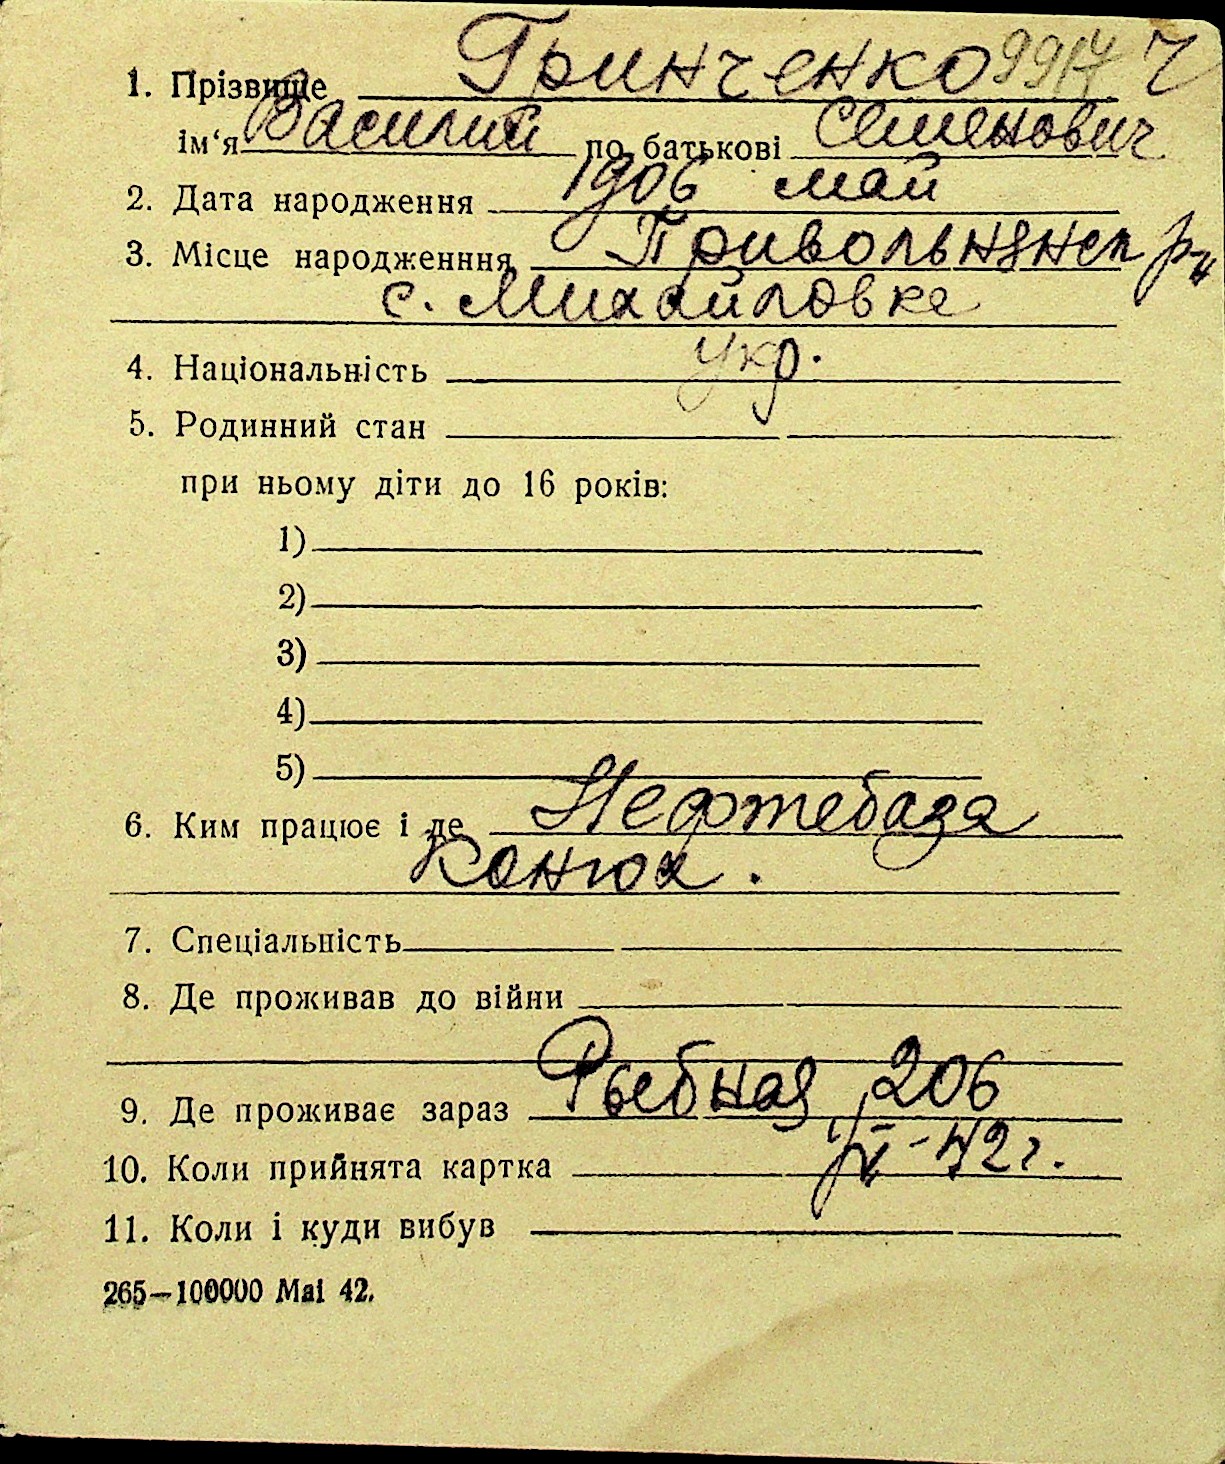 1. Прізвище Гринченко 9917 Ч
ім‘я Василий по батькові Семенович
2. Дата народження 1906 май
3. Місце народженння Привольнянск р-н
с. Михайловке
4. Національність укр.
5. Родинний стан
при ньому діти до 16 років:
1)
2)
3)
4)
5)
6. Ким працює і де Нефтебаза
Конюх.
7. Спеціальність
8. Де проживав до війни
9. Де проживає зараз Рыбная 206
10. Коли прийнята картка -42 г.
11. Коли і куди вибув
265—100000 Mai 42.